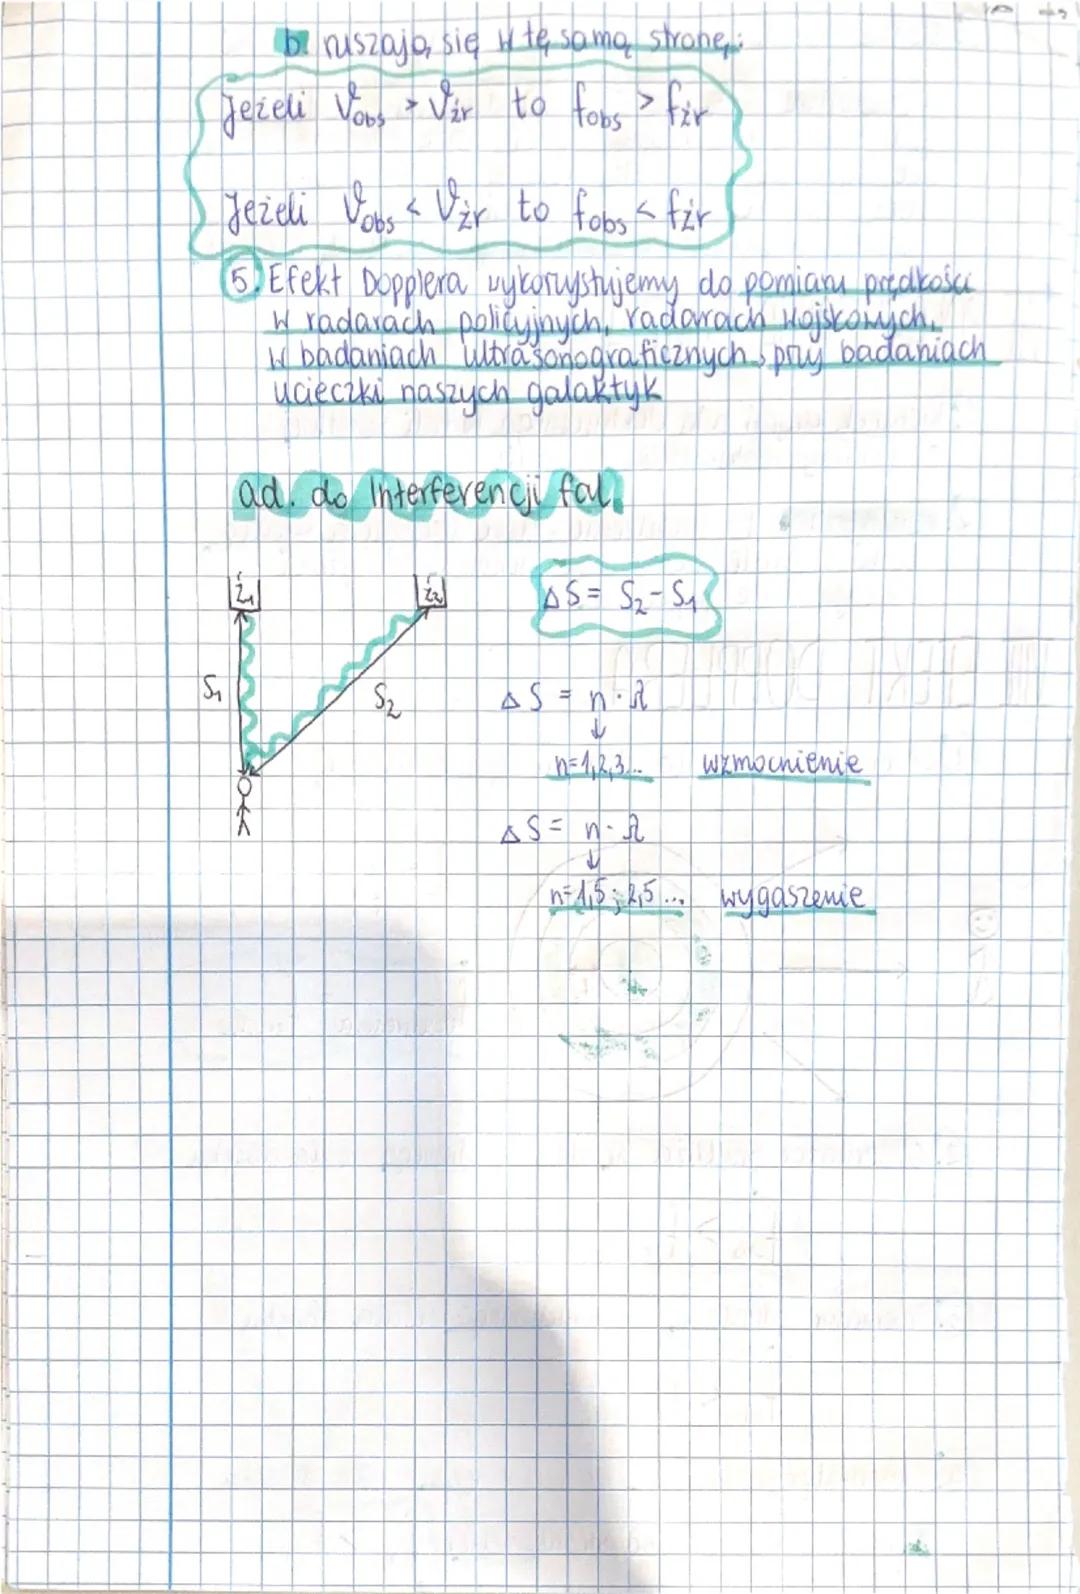 b. ruszają się w tę samą stronę:
Jeżeli Vobs > Vźr to fobs > fźr
Jeżeli Vobs < Vźr to fobs < fźr
5. Efekt Dopplera wykorzystujemy do pomiaru prędkości
w radarach policyjnych, radarach wojskowych,
w badaniach ultrasonograficznych, przy badaniach
ucieczki naszych galaktyk
ad. do Interferencji fal.
Ź1 Ź2
ΔS = S2 - S1
S1 S2
ΔS = n · λ
↓
n=1,2,3... wzmocnienie
ΔS = n · λ
↓
n=1,5; 2,5... wygaszenie